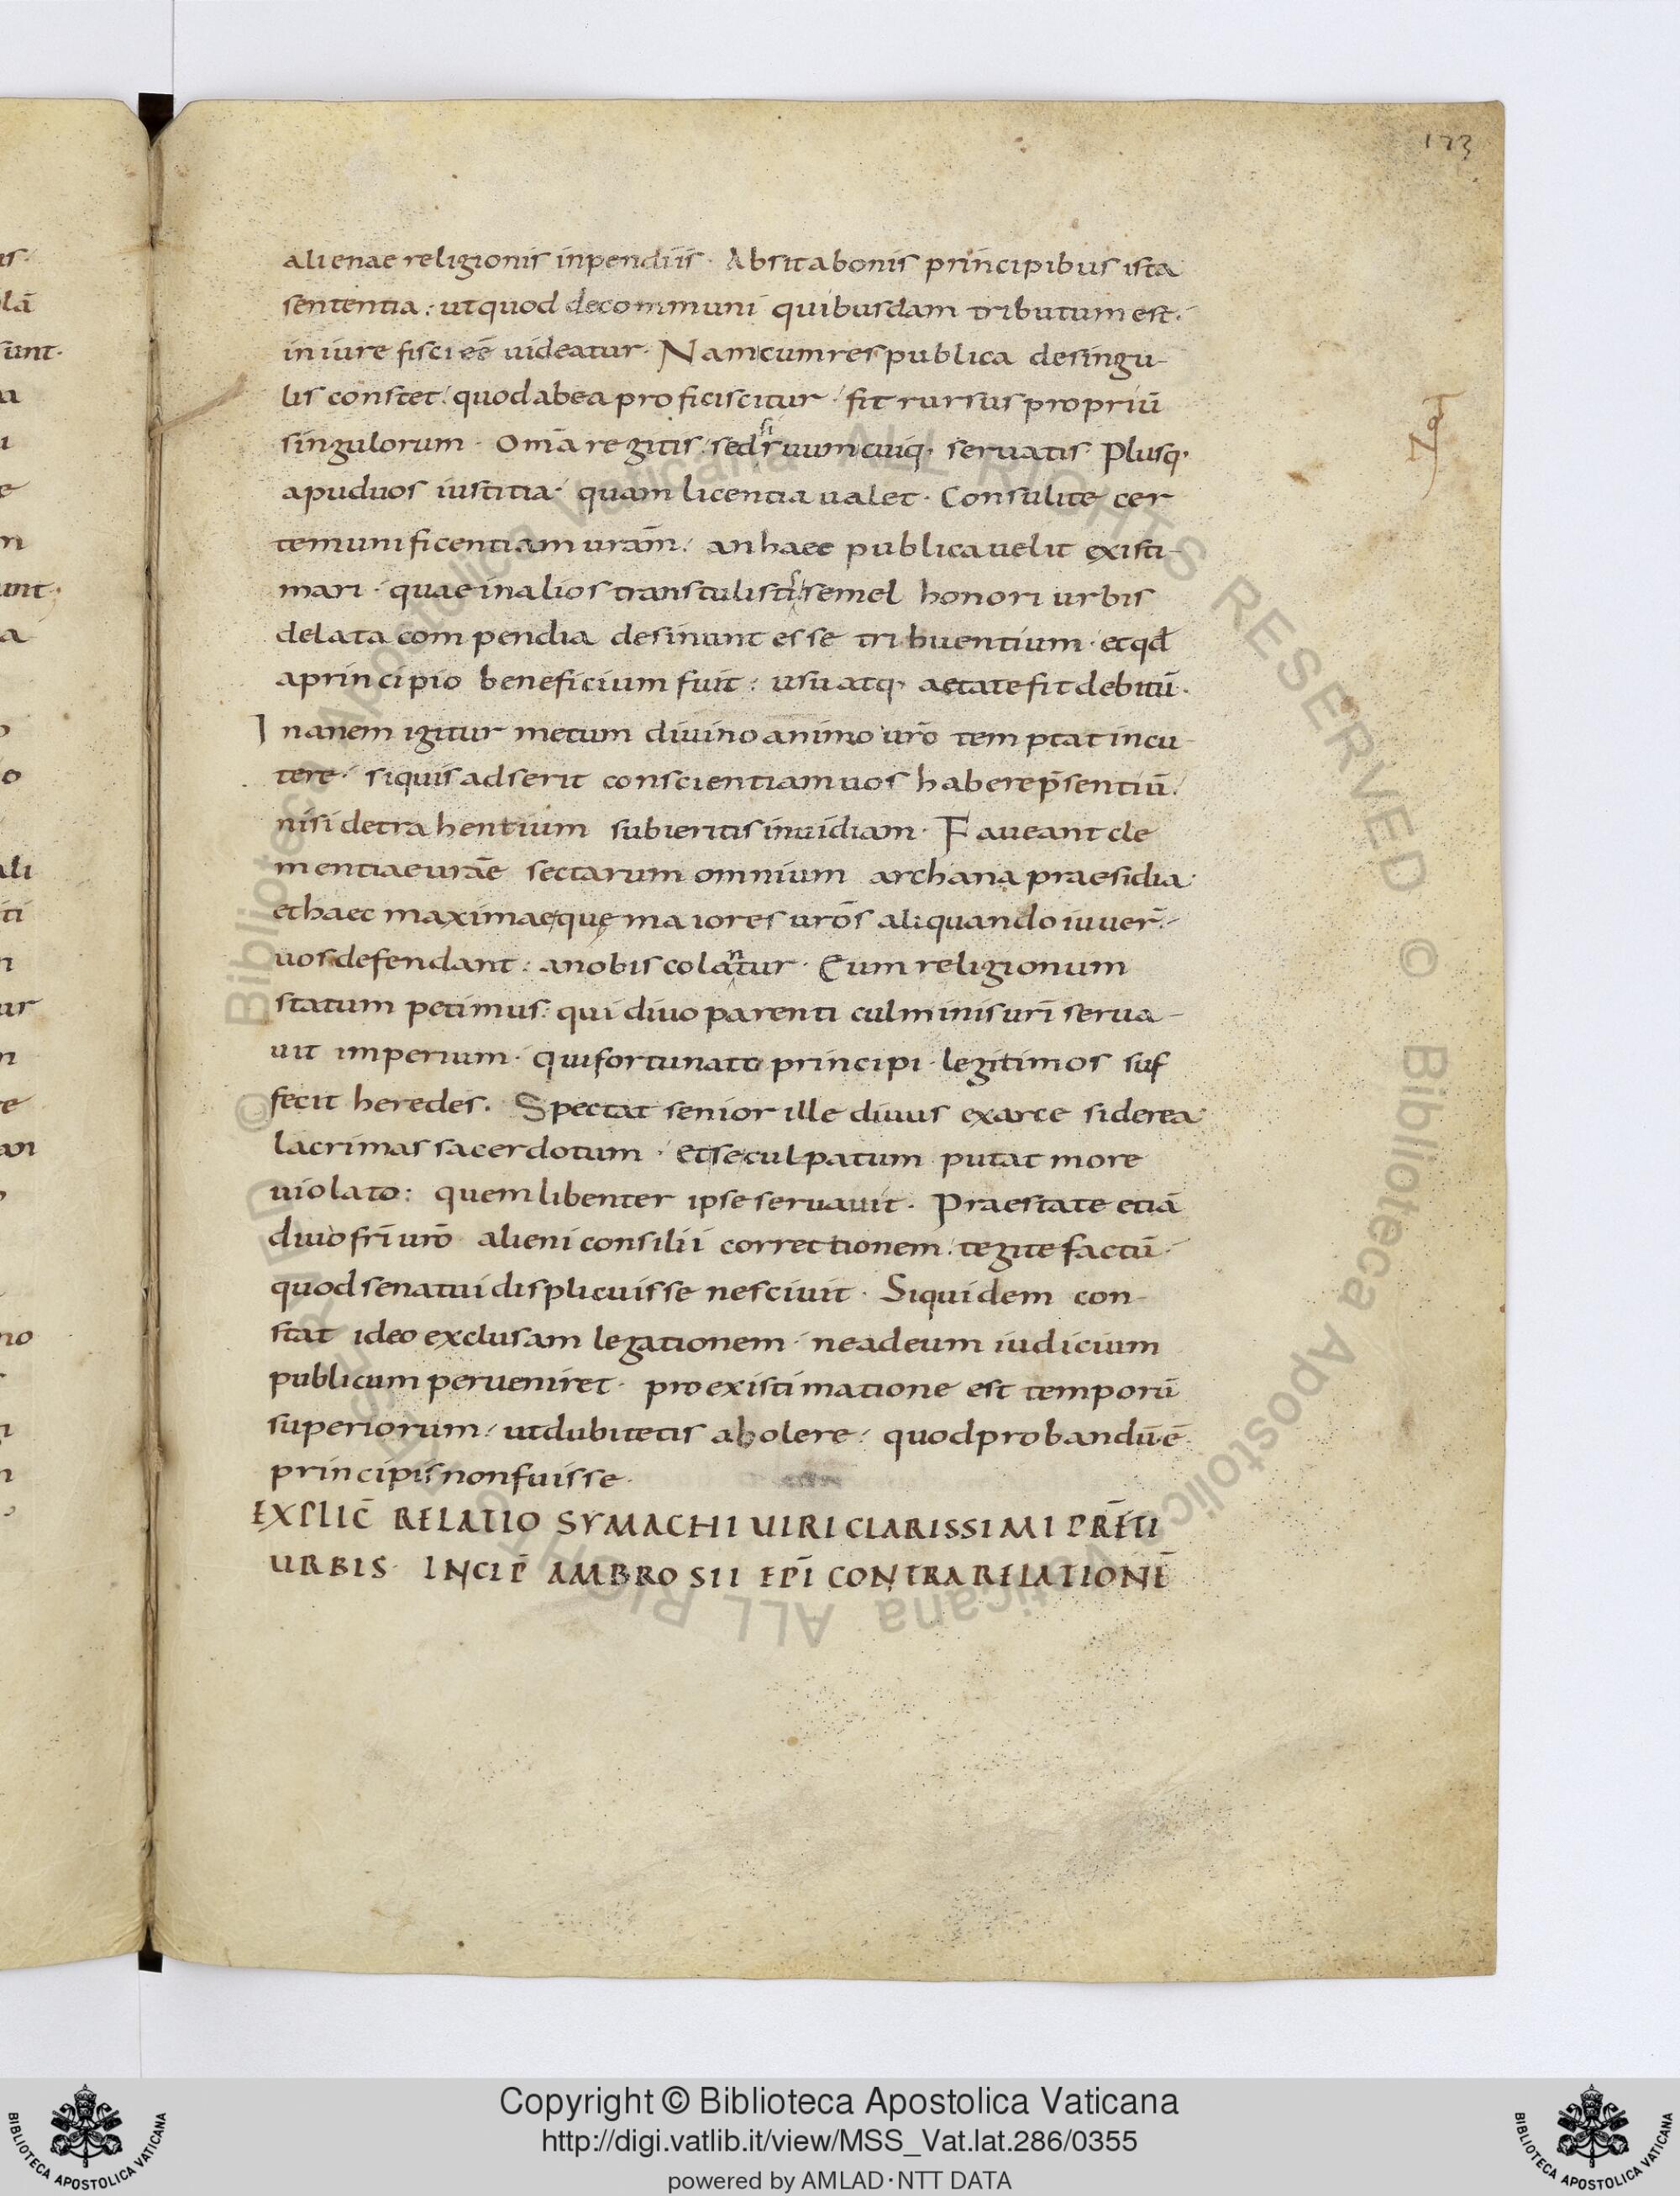 173
alienae religionis inpendiis · Absit a bonis principibus ista
sententia : ut quod de communi quibusdam tributum est ·
in iure fisci eē uideatur · Nam cum res publica de singu-
lis constet · quod ab ea proficiscitur · fit rursus propriū
singulorum · Omā regitis · sed si suum cuiq · seruatis · Plusq ·
apud uos iustitia · quam licentia ualet · Consulite cer
te munificentiam urām · an haec publica uelit existi-
mari · quae in alios transtulistis semel honori urbis
delata compendia desinunt esse tribuentium · et qd̄
a principio beneficium fuit : usu atq · aetate fit debitū ·
Inanem igitur metum diuino animo urō temptat incu-
tere · si quis adserit conscientiam uos habere p̄sentiū ·
nisi detrahentium subieritis inuidiam · Faueant cle
mentiae urāe sectarum omnium archana praesidia ·
et haec maximae quę maiores urōs aliquando iuuer̄ ·
uos defendant : a nobis colantur · Eum religionum
statum petimus : qui diuo parenti culminis urī serua-
uit imperium · qui fortunato principi · legitimos suf
fecit heredes · Spectat senior ille diuus ex arce siderea ·
lacrimas sacerdotum · et se culpatum putat more
uiolato : quem libenter ipse seruauit · Praestate etiā
diuo frī urō alieni consilii correctionem · tegite factū ·
quod senatui displicuisse nesciuit · Siquidem con-
stat ideo exclusam legationem · ne ad eum iudicium
publicum perueniret · pro existimatione est temporū
superiorum · ut dubitetis abolere · quod probandū ē
principis non fuisse ·
EXPLIC̄ RELATIO SYMACHI UIRI CLARISSIMI PRĒTI
URBIS · INCIP̄ AMBROSII EPĪ CONTRA RELATIONĒ
Copyright © Biblioteca Apostolica Vaticana
http://digi.vatlib.it/view/MSS_Vat.lat.286/0355
powered by AMLAD · NTT DATA
BIBLIOTECA APOSTOLICA VATICANA
BIBLIOTECA APOSTOLICA VATICANA
© Biblioteca Apostolica Vaticana ALL RIGHTS RESERVED © Biblioteca Apostolica Vaticana ALL RIGHTS RESERVED